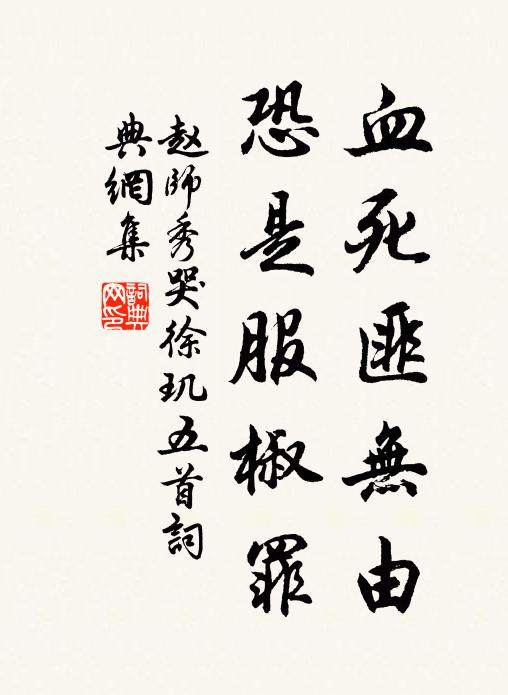 血死匪無由
恐是服椒罪
赵師秀哭徐玑五首詞
典網集
詞典
网印